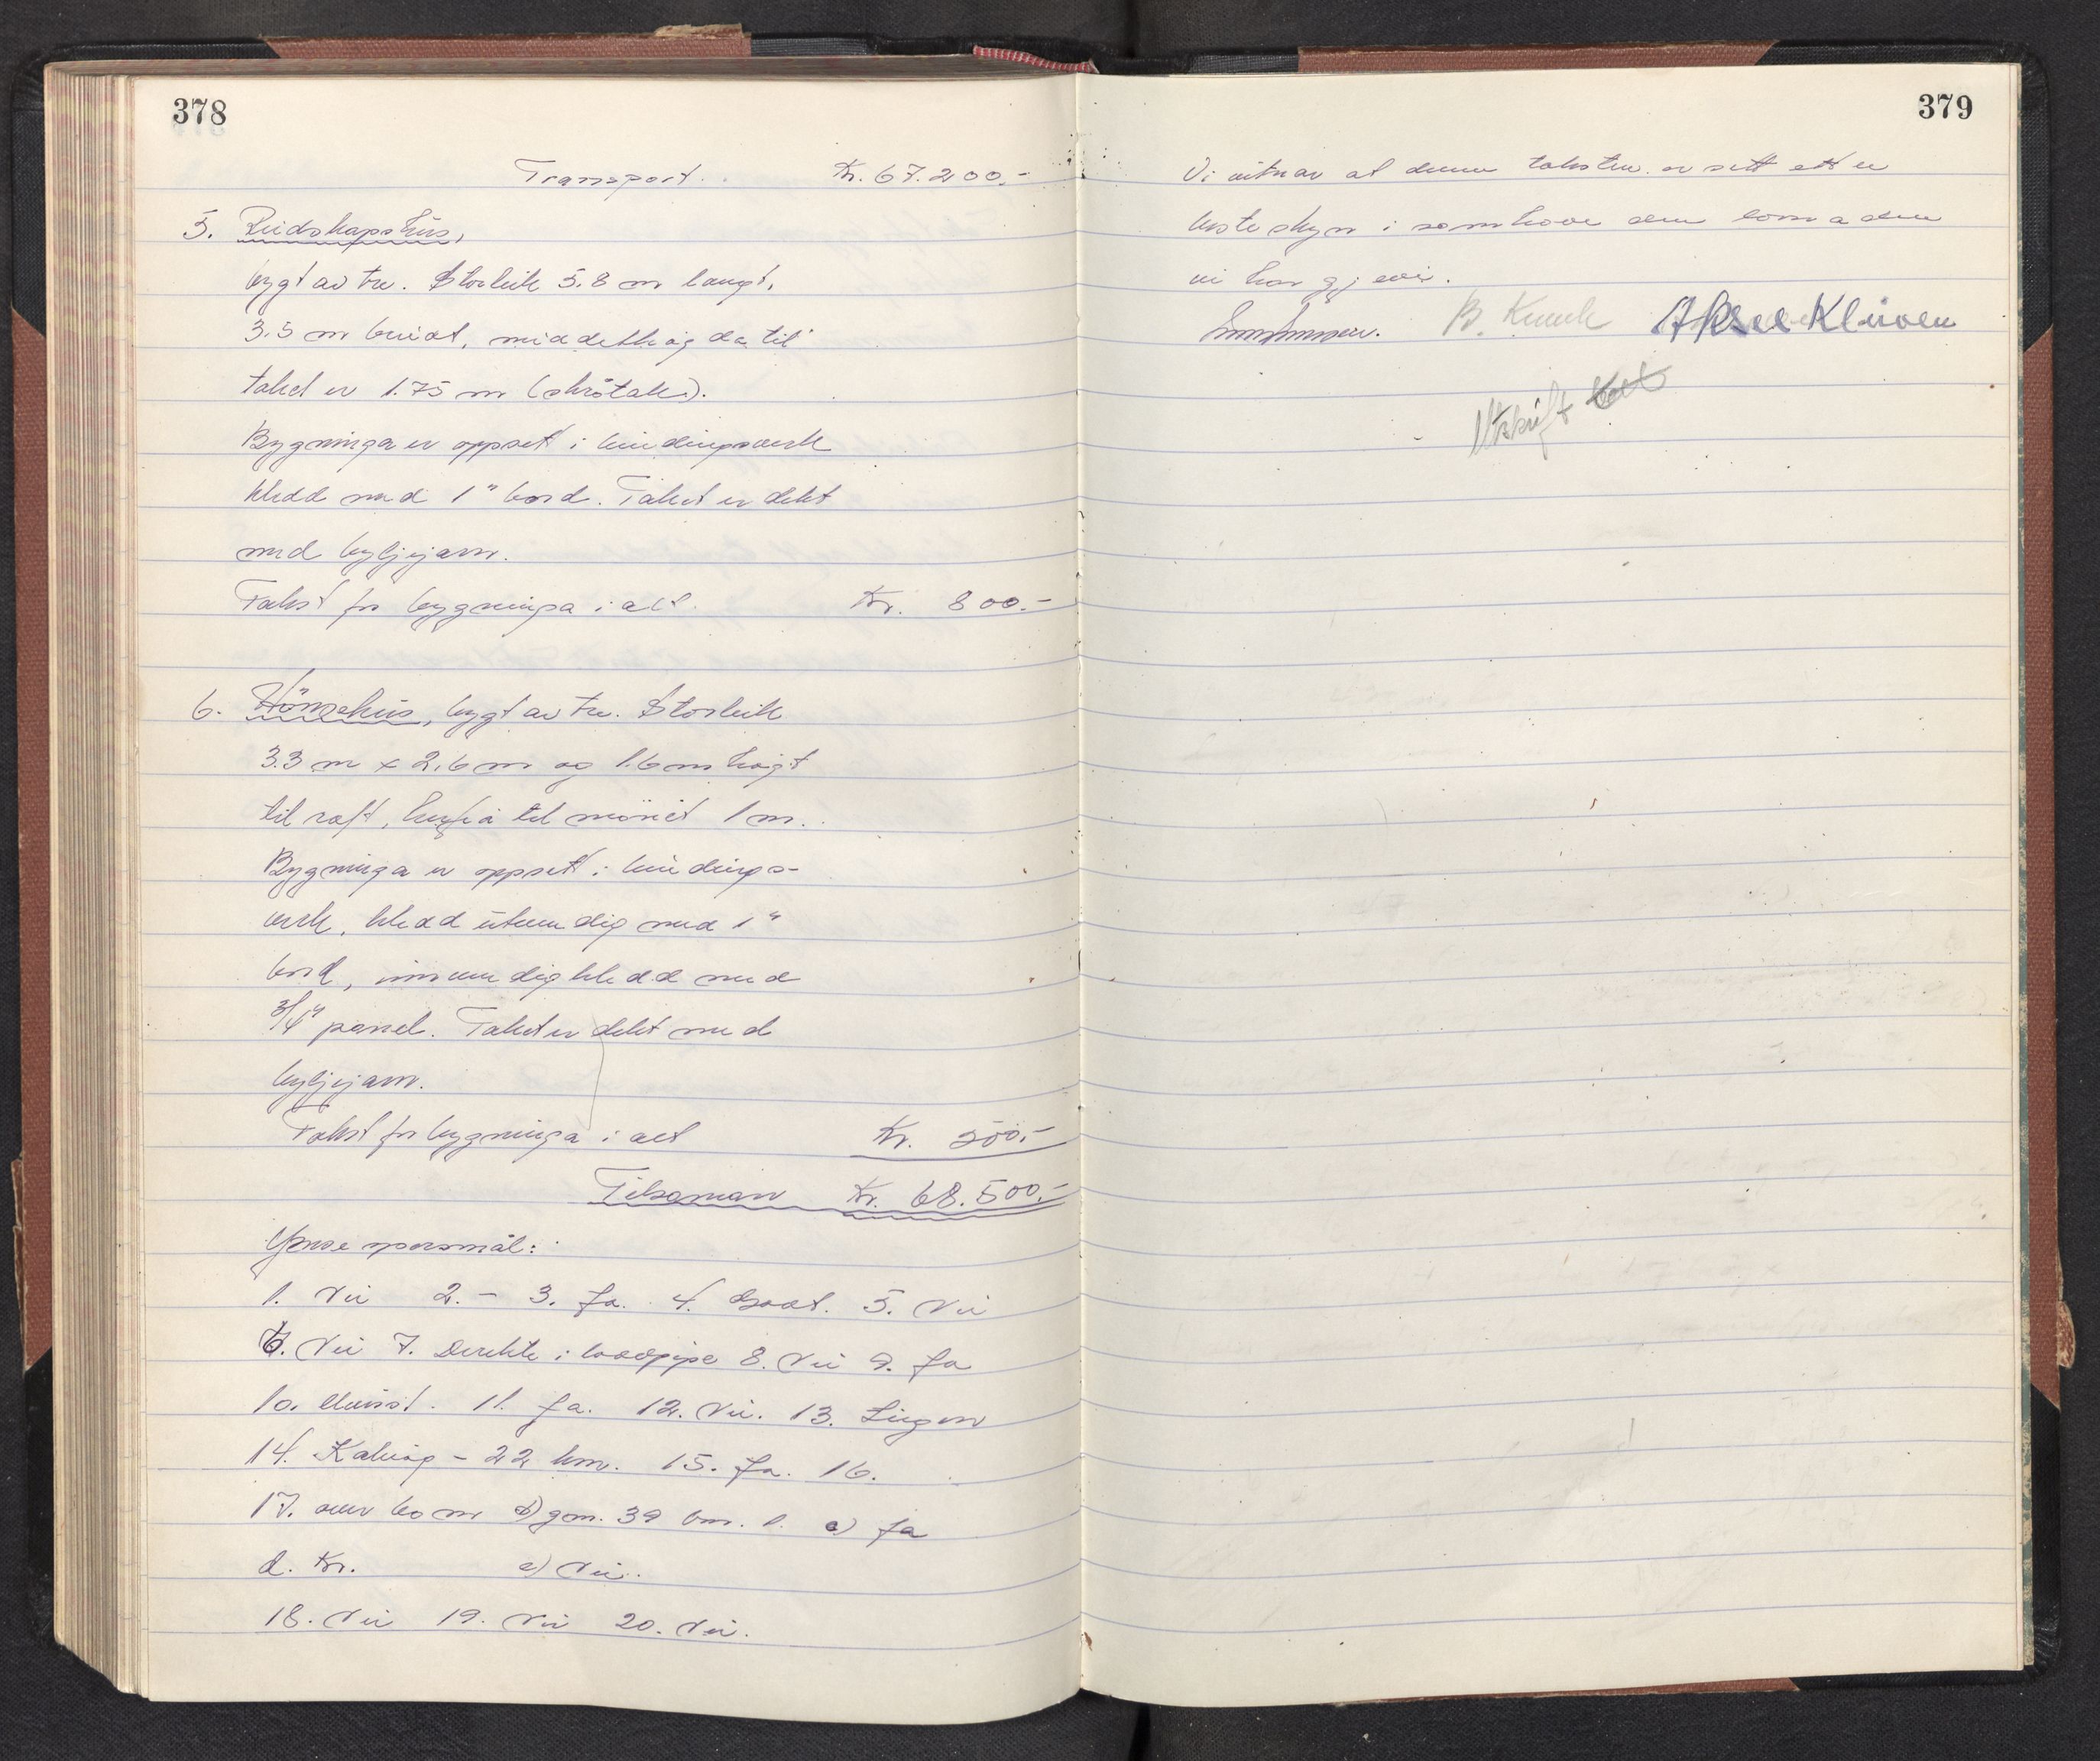 378
Transport. Kr. 67.200.-
5. Reidskapshus,
bygt av tre. Storleik 5.8 m langt,
3.5 m breidt, middelhøgda til
taket er 1.75 m (skråtak).
Bygninga er oppsett i bindingsverk
kledd med 1" bord. Taket er dekt
med bylgjejarn.
Takst for bygninga i alt. Kr. 800.-
6. Hönsehus, bygt av tre. Storleik
3.3 m x 2.6 m og 1.6 m høgt
til raft, herfrå til mönet 1 m.
Bygninga er oppsett i bindings-
verk, kledd utvendig med 1"
bord, innvendig kledd med
3/4" panel. Taket er dekt med
bylgjejarn.
Takst for bygninga i alt Kr. 500.-
Tilsaman Kr. 68.500.-
Ymse spørsmål:
1. Nei 2. - 3. Ja. 4. Godt. 5. Nei
6. Nei 7. Direkte i 8. Nei 9. Ja
10. 11. Ja. 12. Nei. 13. Ingen
14. Kalvåg - 22 km. 15. Ja. 16.
17. over 60 m b) gm. 39 bm. l. c) Ja
d. Kr. e) Nei.
18. Nei 19. Nei 20. Nei.
379
Vi vitnar at denne taksten er sett etter
beste skyn i samhøve den lovnaden
vi har gjeve.
B. Aksel Kleiven
Utskrift